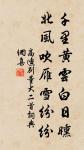 千里黄雲白日曛
北風吹雁雪紛紛
高適别董大二首詞典
網